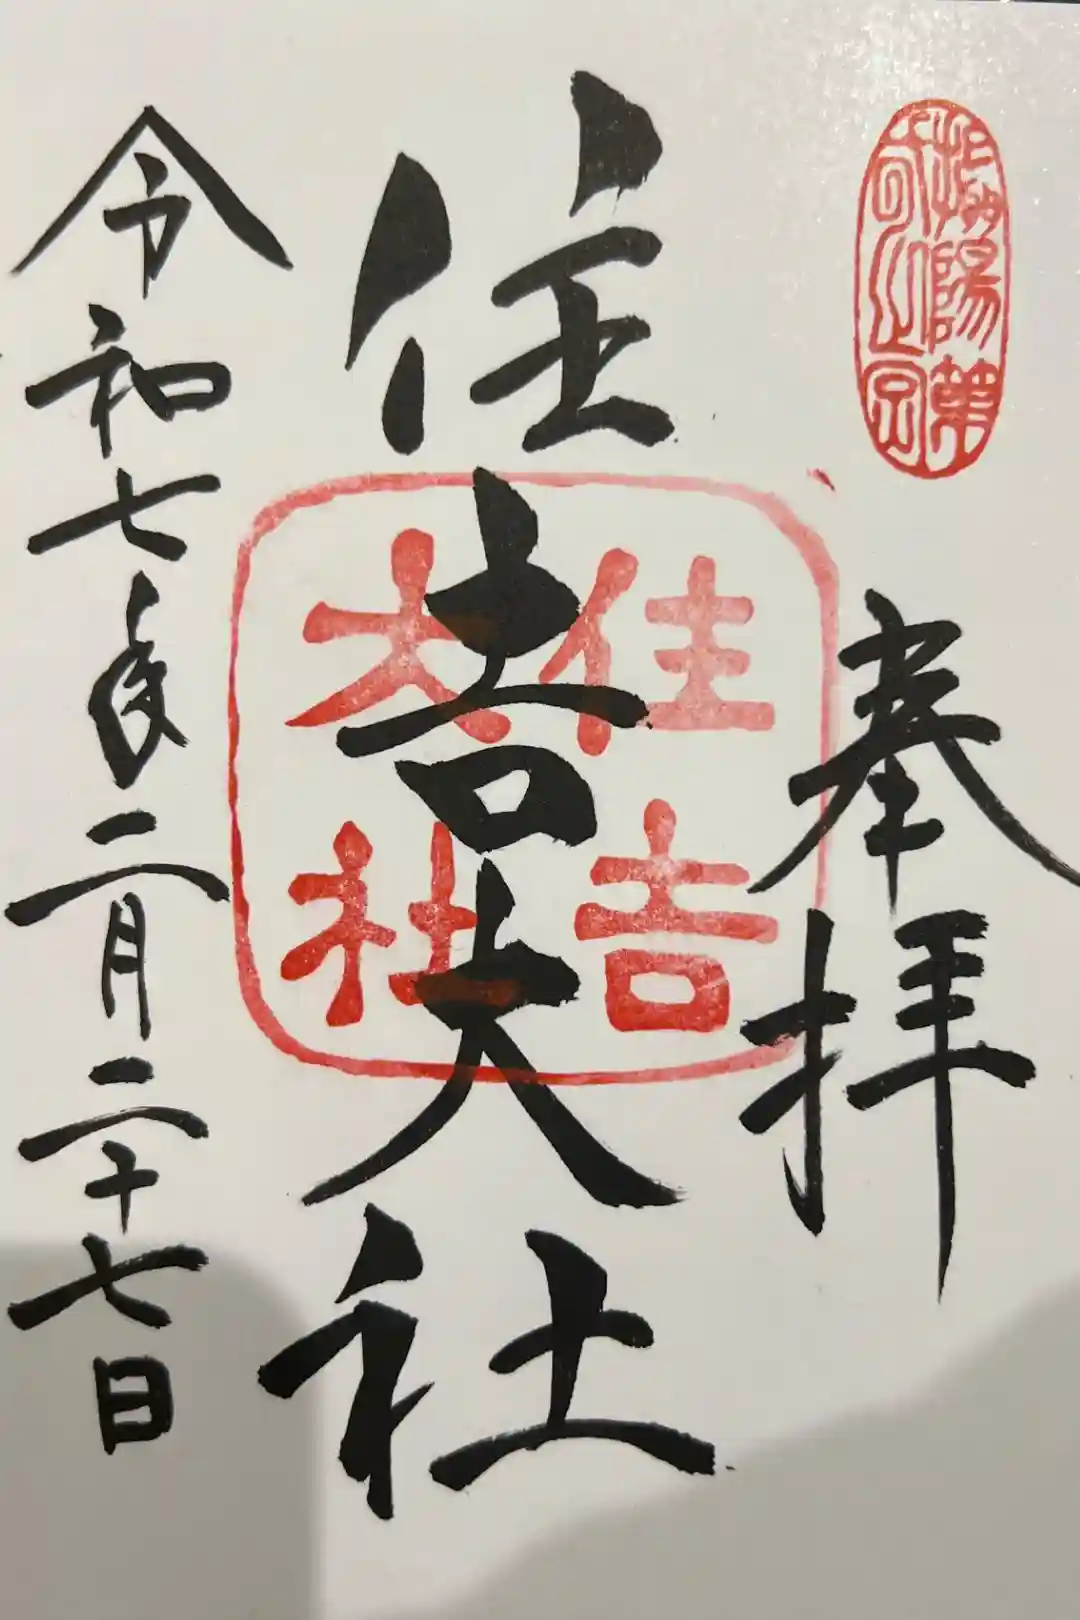 攝陽第
奉拝
住吉大社
住吉
大社
令和七年二月二十七日